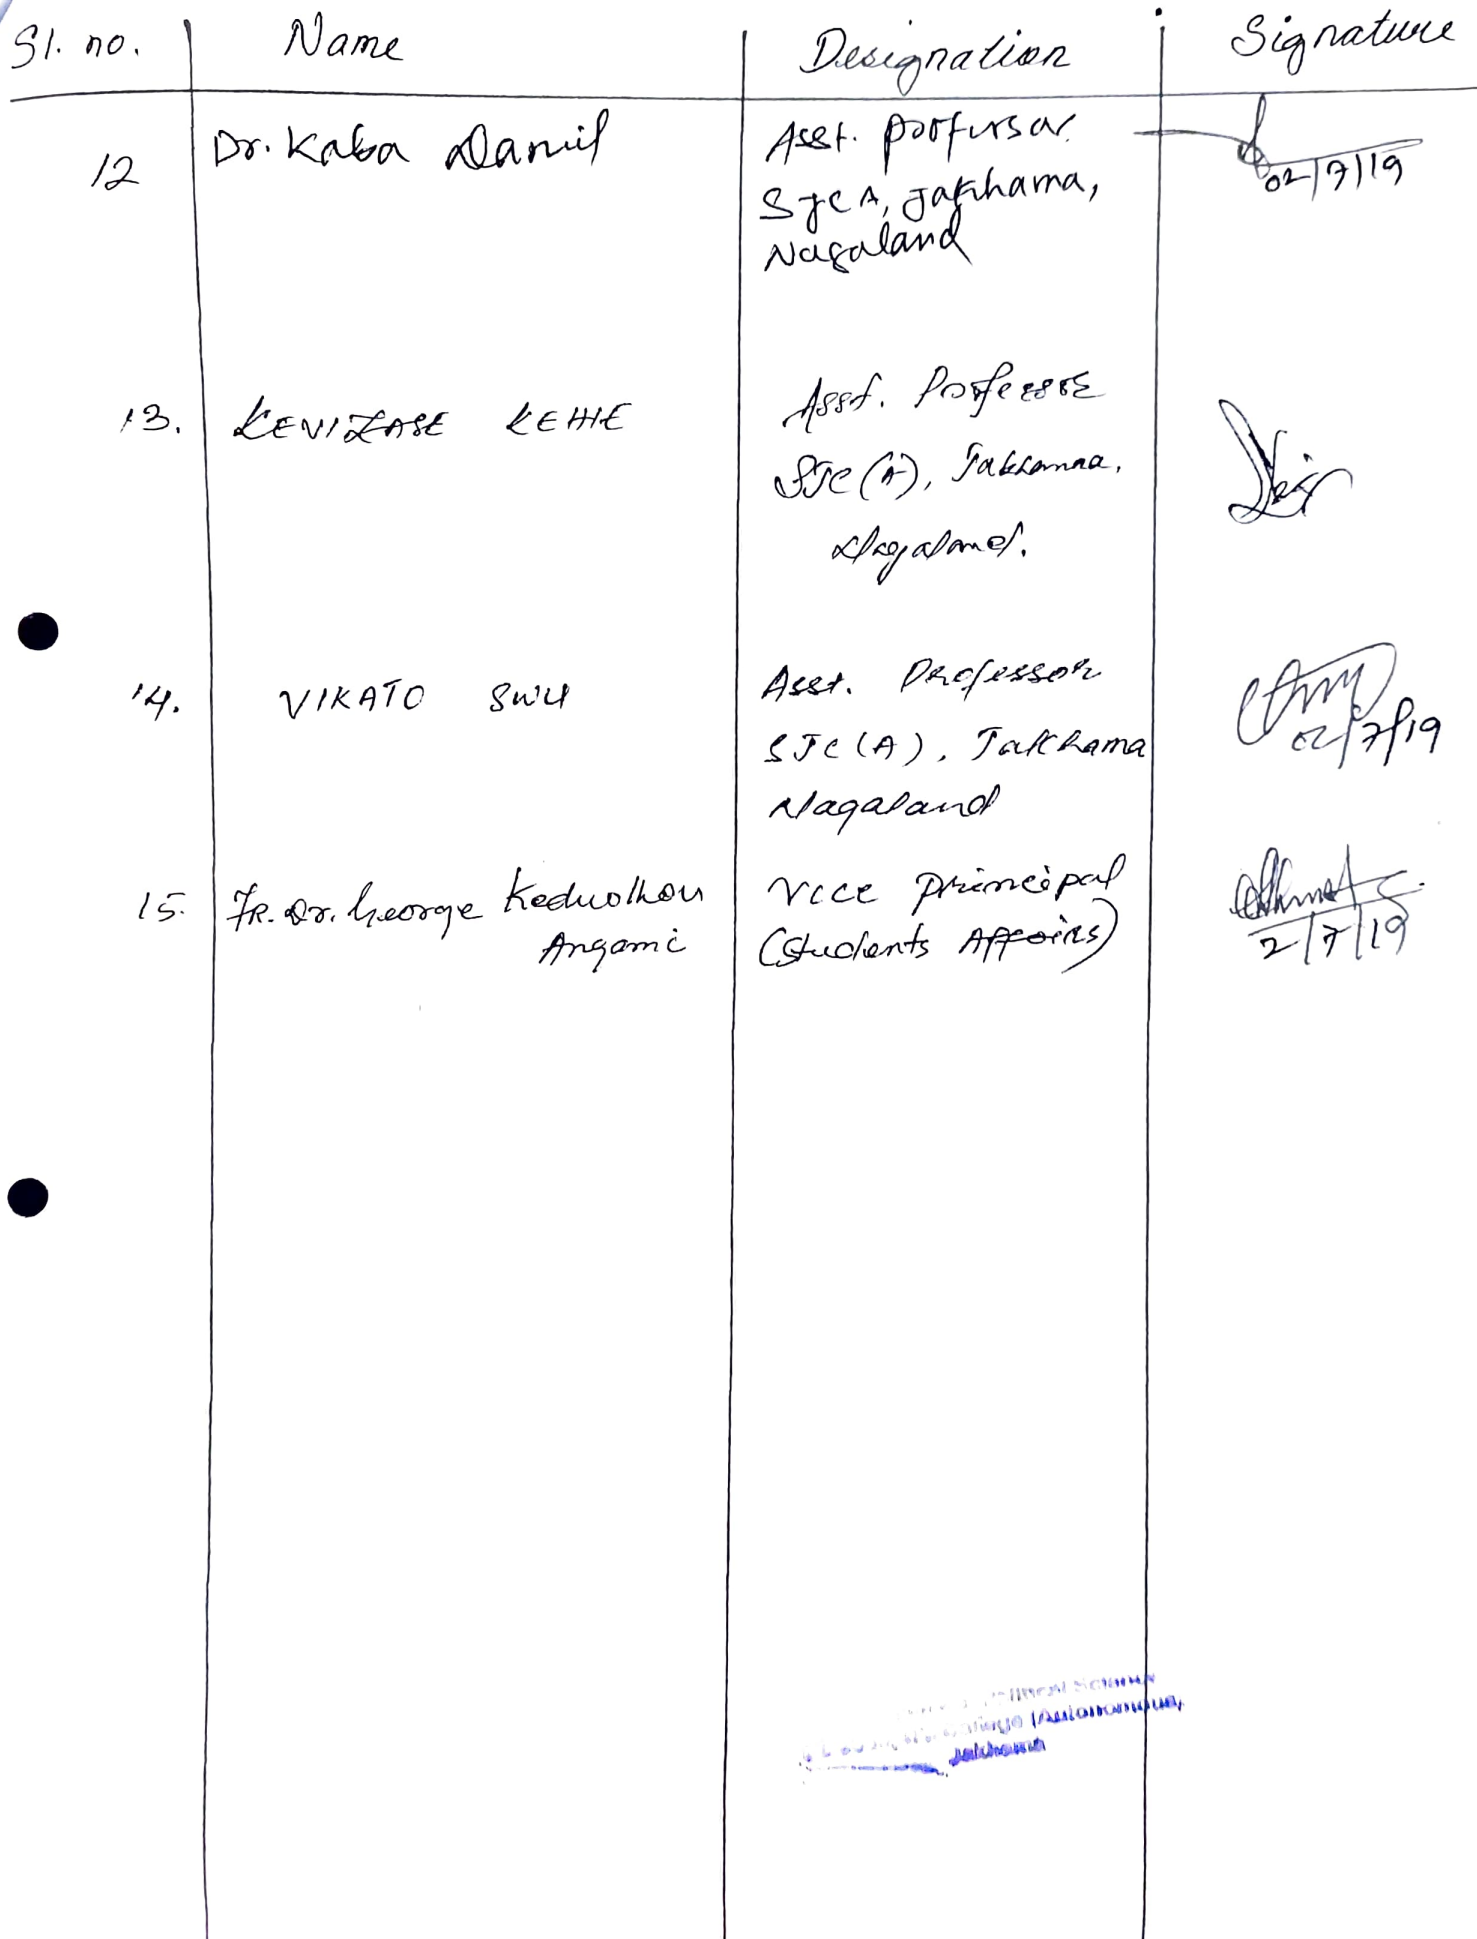 Sl. no. Name Designation Signature
12 Dr. Kaba Daniil Asst. Professor 02/7/19
SJCA, Jakhama,
Nagaland
13. KEVIZASE KEHIE Asst. Professor
SJC (A), Jakhama,
Nagaland.
14. VIKATO SWU Asst. Professor 02/7/19
SJC (A), Jakhama
Nagaland
15. FR. Dr. George Keduolhou Vice Principal
Angami (Students Affairs) 2/7/19
Political Science
College (Autonomous)
Jakhama